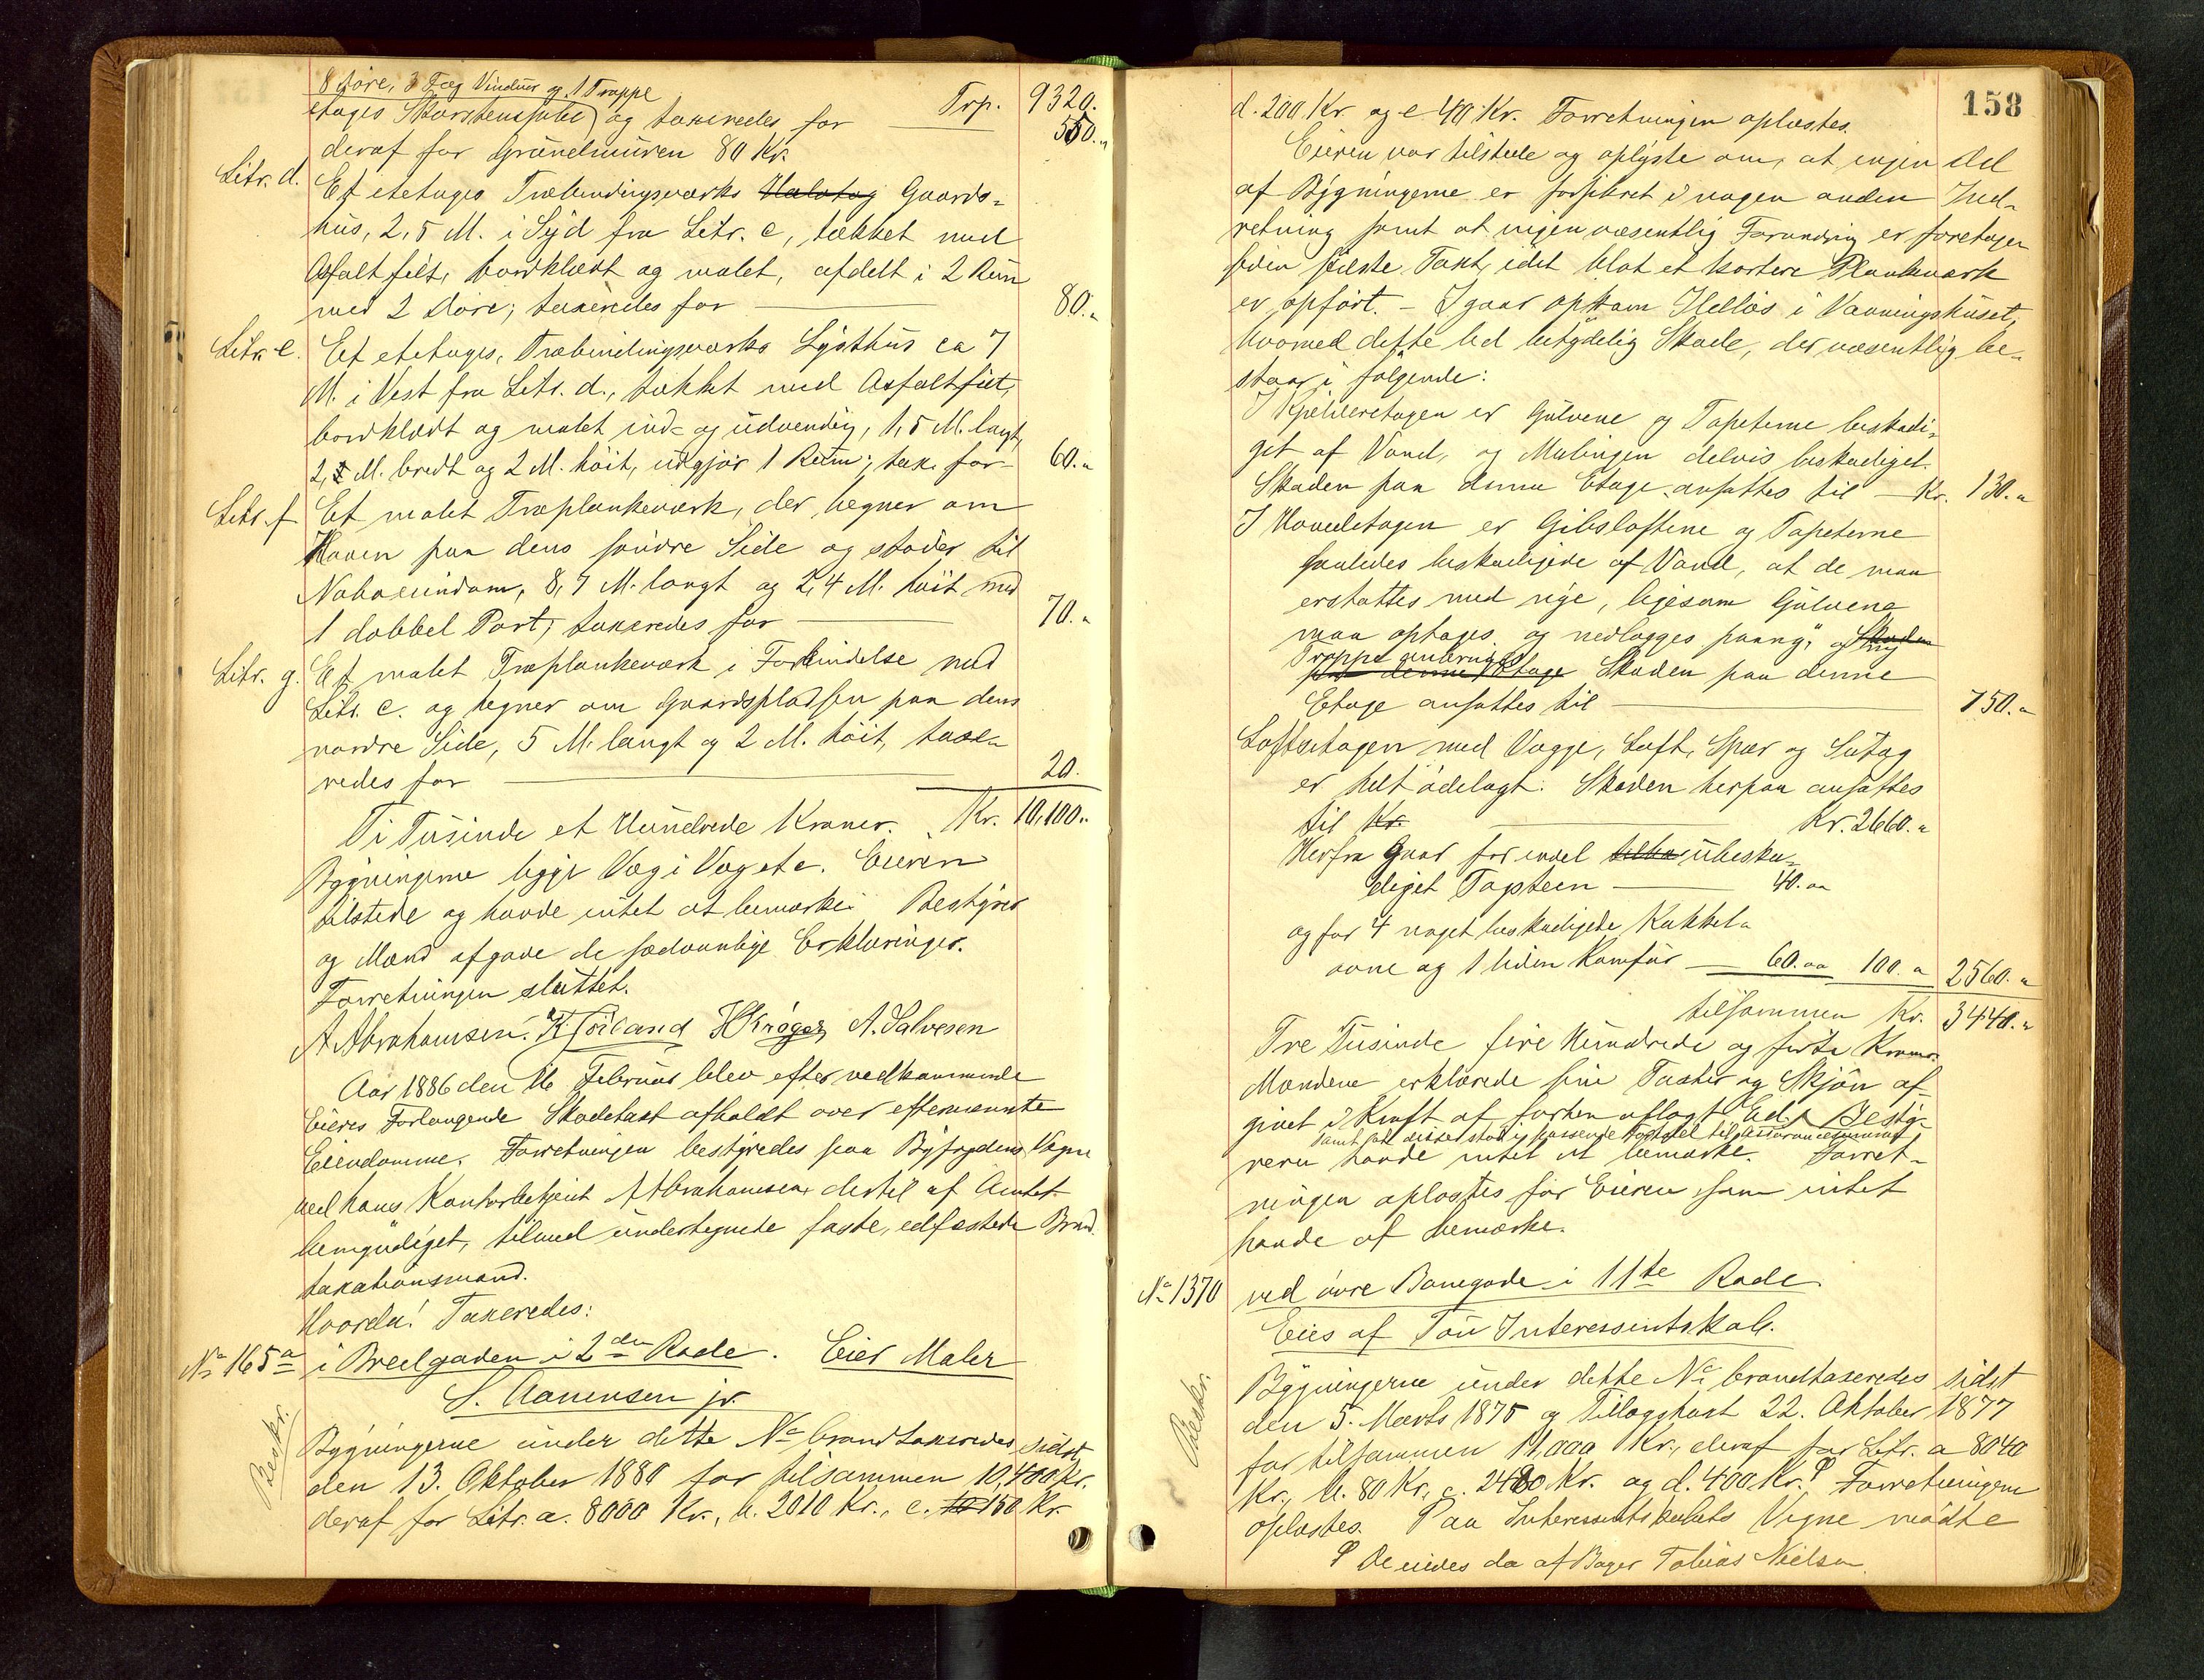 8 Döre, 3 Fag Vinduer og 1 Trappe
etages Skorstenspibe) og taxeredes for Trp. 9320.
550.„
deraf for Grundmuren 80 Kr.
Litr. d. Et etetages Træbindingsværks Halvtag Gaards-
hus, 2,5 M. i Syd fra Litr. c, tækket med
Asfaltfilt, bordklædt og malet, afdelt i 2 Rum
med 2 Döre; taxeredes for 80.„
Litr. e. Et etetages, Træbindingsværks Lysthus ca 7
M. i Vest fra Litr. d., tækket med Asfaltfilt,
bordklædt og malet ind- og udvendig, 1,5 M. langt,
2, M. bredt og 2 M. höit, udgjör 1 Rum; tax. for 60.„
Litr. f. Et malet Træplankeværk, der hegner om
Haven paa dens söndre Side og stöder til
Naboeiendom, 8,7 M. langt og 2,4 M. höit med
1 dobbel Port; taxeredes for 70.„
Litr. g. Et malet Træplankeværk i Forbindelse med
Litr. c. og hegner om Gaardspladsen paa dens
nordre Side, 5 M. langt og 2 M. höit, taxe-
redes for 20.
Ti Tusinde et Hundrede Kroner. Kr. 10,100.„
Bygningerne ligge Væg i Væg etc. Eieren
tilstede og havde intet at bemærke. Bestyrer
og Mænd afgave de sædvanlige Erklæringer.
Forretningen sluttet.
A Abrahamsen. K Joiland H Kröger A. Salvesen
Aar 1886 den 16 Februar blev efter vedkommende
Eieres Forlangende Skadetaxt afholdt over efternævnte
Eiendomme. Forretningen bestyredes paa Byfogdens Vegne
ved hans Kontorbetjent A Abrahamsen dertil af Amtet
bemyndiget, tilmed undertegnede faste, edfæstede Brand-
taxationsmænd.
Hvorda! Taxeredes:
No 165a i Bredgaden i 2den Rode. Eier Maler
S. Aanensen jr.
Beskr.
Bygningerne under dette No brandtaxeredes sidst
den 13. Oktober 1880 for tilsammen 10,400 Kr.
deraf for Litr. a. 8000 Kr., b. 2010 Kr., c. 150 Kr.
158
d. 200 Kr. og e 40 Kr. Forretningen oplæstes.
Eieren var tilstede og oplyste om, at ingen Del
af Bygningerne er forsikret i nogen anden Ind-
retning samt at ingen væsentlig Forandring er foretagen
siden sidste Taxt, idet blot et kortere Plankeværk
er opfört. – Igaar opkom Ildlös i Vaaningshuset,
hvorved dette led betydelig Skade, der væsentlig be-
staar i fölgende:
I Kjelderetagen er Gulvene og Tapeterne beskadi-
get af Vand, og Malingen delvis beskadiget.
Skaden paa denne Etage ansattes til – Kr. 130.„
I Hovedetagen er Gibslofterne og Tapeterne
saaledes beskadigede af Vand, at de maa
erstattes med nye, ligesom Gulvene
maa optages og nedlægges paany, og ny Skaden
Trappe anbringes
paa denne Etage Skaden paa denne
Etage ansattes til 750.„
Loftsetagen med Vægge, Loft, Spær og Sutag
er helt ödelagt. Skaden herpaa ansattes
til Kr. Kr. 2660.„
Herfra Gaar for endel ubeska-
diget Tagsteen 40.„„
og for 4 noget beskadigede Kakkel-
ovne og 1 liden Komfur – 60.„„ 100.„ 2560.„
tilsammen Kr. 3440.„
Tre Tusinde fire Hundrede og firti Kroner.
Mændene erklærede sine Taxter og Skjön af-
givet i Kraft af forhen aflagt Ed, Besty-
samt at disse stod i passende Forhold til Assurancesummen
reren havde intet at bemærke. Forret-
ningen oplæstes for Eieren som intet
havde at bemærke.
No 1370 ved övre Banegade i 11te Rode.
Eies af Tou Interessentskab.
Beskr.
Bygningerne under dette No brandtaxeredes sidst
den 5. Marts 1875 og Tillægstaxt 22. Oktober 1877
for tilsammen 11,000 Kr., deraf for Litr. a 8040
Kr., b. 80 Kr., c. 2480 Kr. og d. 400 Kr. Forretningen
oplæstes. Paa Interessentskabets Vegne mödte
De eiedes da af Bager Tobias Nielsen